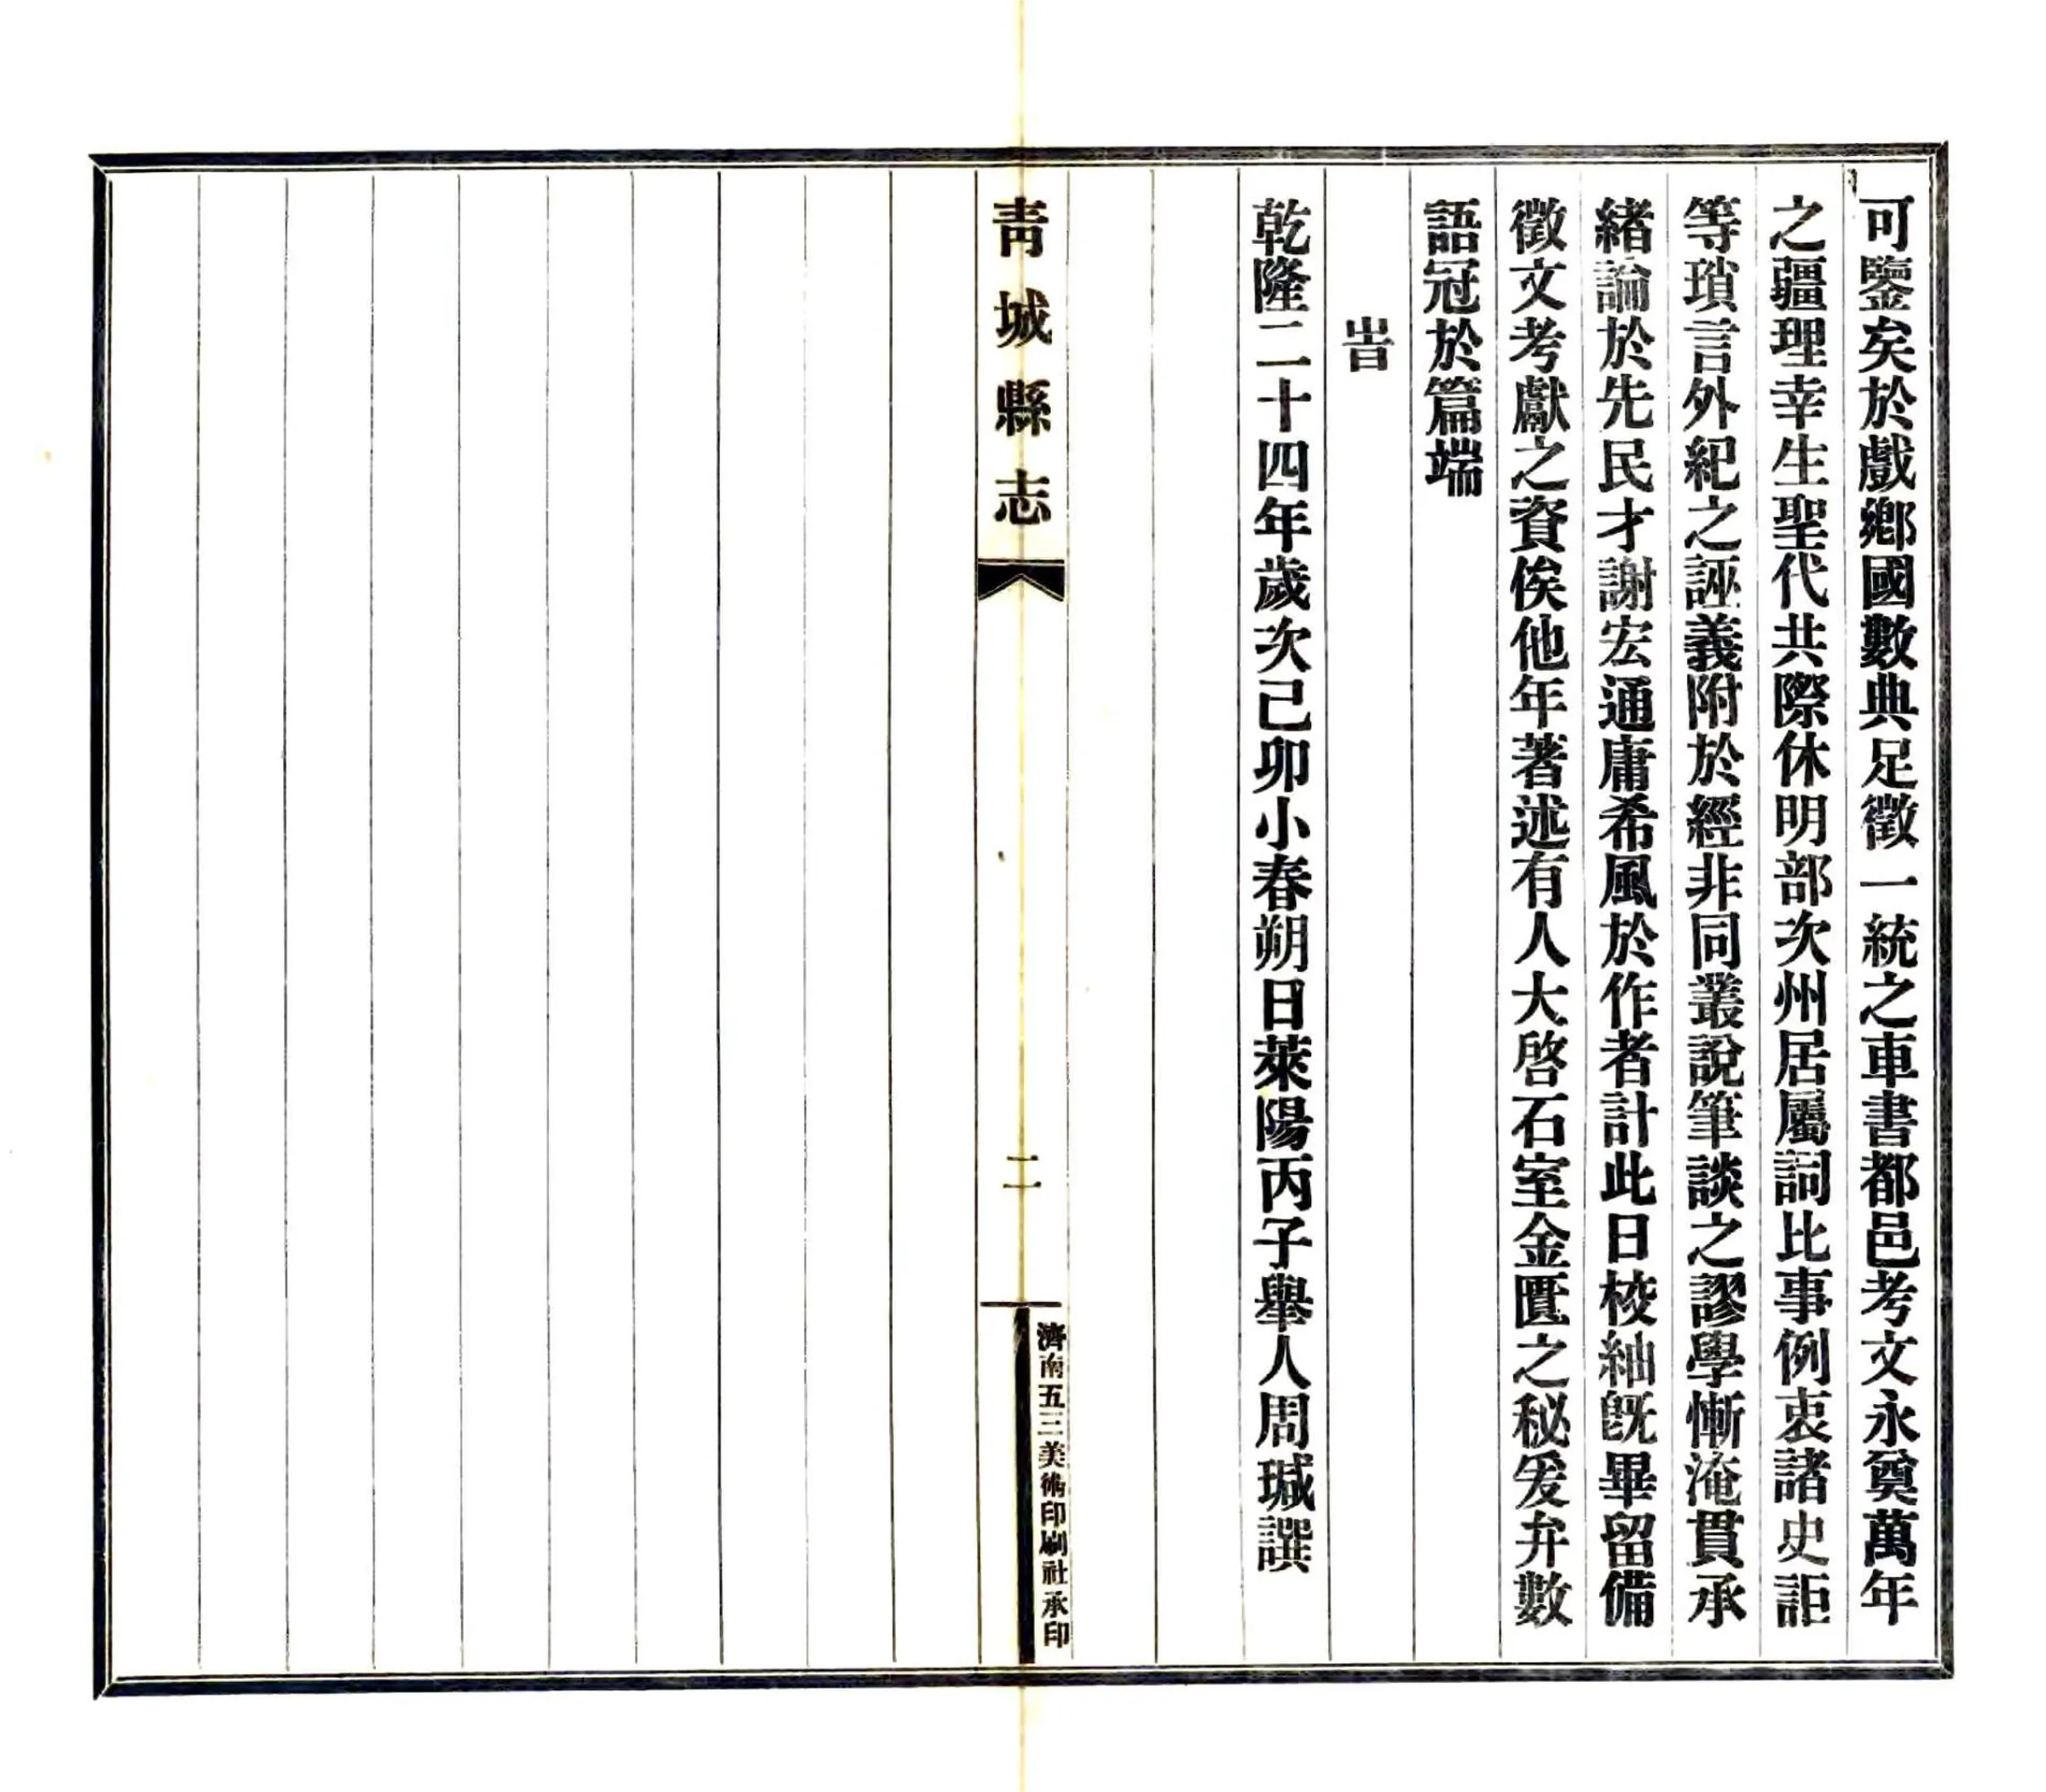 可鑒矣於戲鄉國數典足徵一統之車書都邑考文永奠萬年
之疆理幸生聖代共際休明部次州居屬詞比事例衷諸史詎
等瑣言外紀之誣義附於經非同叢說筆談之謬學慚淹貫承
緒論於先民才謝宏通庸希風於作者計此日校紬旣畢留備
徵文考獻之資俟他年著述有人大啓石室金匱之秘爰弁數
語冠於篇端
旹
乾隆二十四年歲次己卯小春朔日萊陽丙子舉人周瑊譔
靑城縣志
二
濟南五三美術印刷社承印